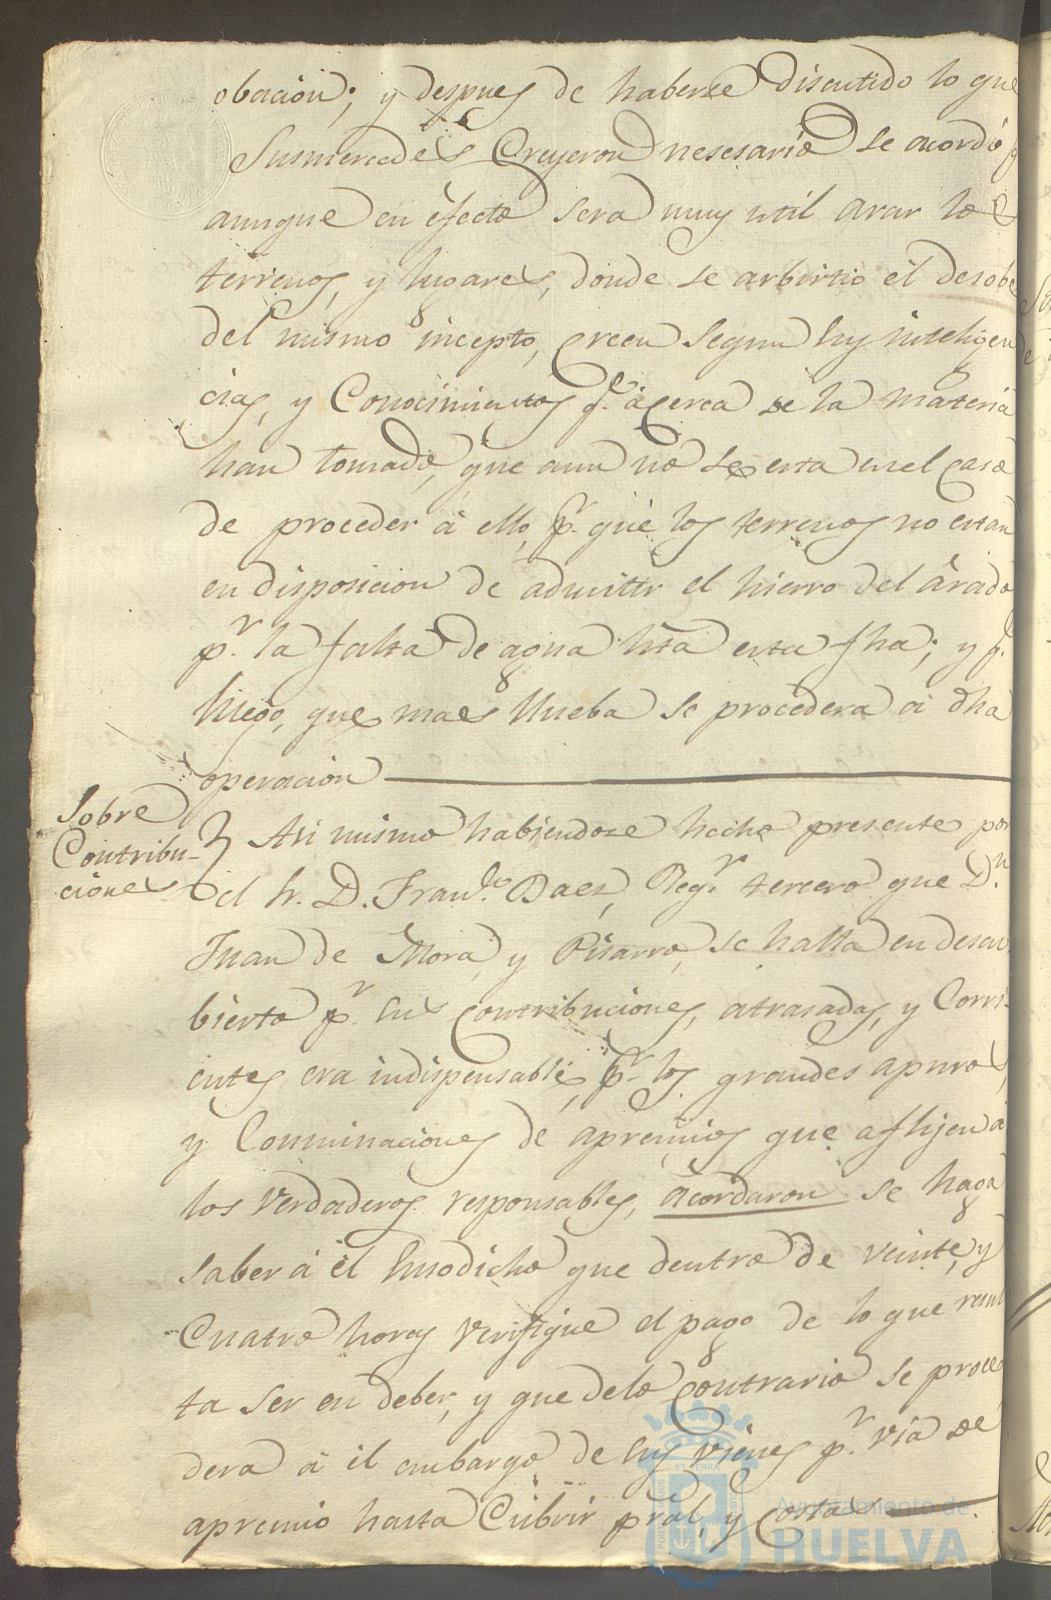 obacion; y despues de haberse discutido lo que
Susmercedes Creyeron nesesario se acordó q
aunque en efecto sera muy util arar los
terrenos, y lugares, donde se arbirtio el desobe
del mismo incepto, creen segun sus inteligen
cias, y Conocimientos q.e acerca de la materia
han tomado, que aun no se esta en el caso
de proceder á ello, p.r que los terrenos no estan
en disposicion de admitir el hierro del árado
p.r la falta de agua hta esta fha; y q.
luego, que mas llueba se procedera á dha
operacion
Sobre
Contribu-
ciones
Asi mismo habiendose hecho presente por
el Sr. D. Fran.co Baez, Reg.r tercero que D.n
Juan de Mora, y Pisarro, se halla en descu
bierto p.r sus contribuciones, atrasadas, y Corri-
entes era indispensable, p.r los grandes apuros,
y Conminaciones de apremios que aflijen á
los verdaderos responsables, acordaron se haga
saber á él Susodicho que dentro de veinte, y
Cuatro horas verifique el pago de lo que resul
ta ser en deber, y que delo contrario se proce
dera á él embargo de sus vienes p.r via de
apremio hasta Cubrir pral, y costas
Ayuntamiento de
HUELVA